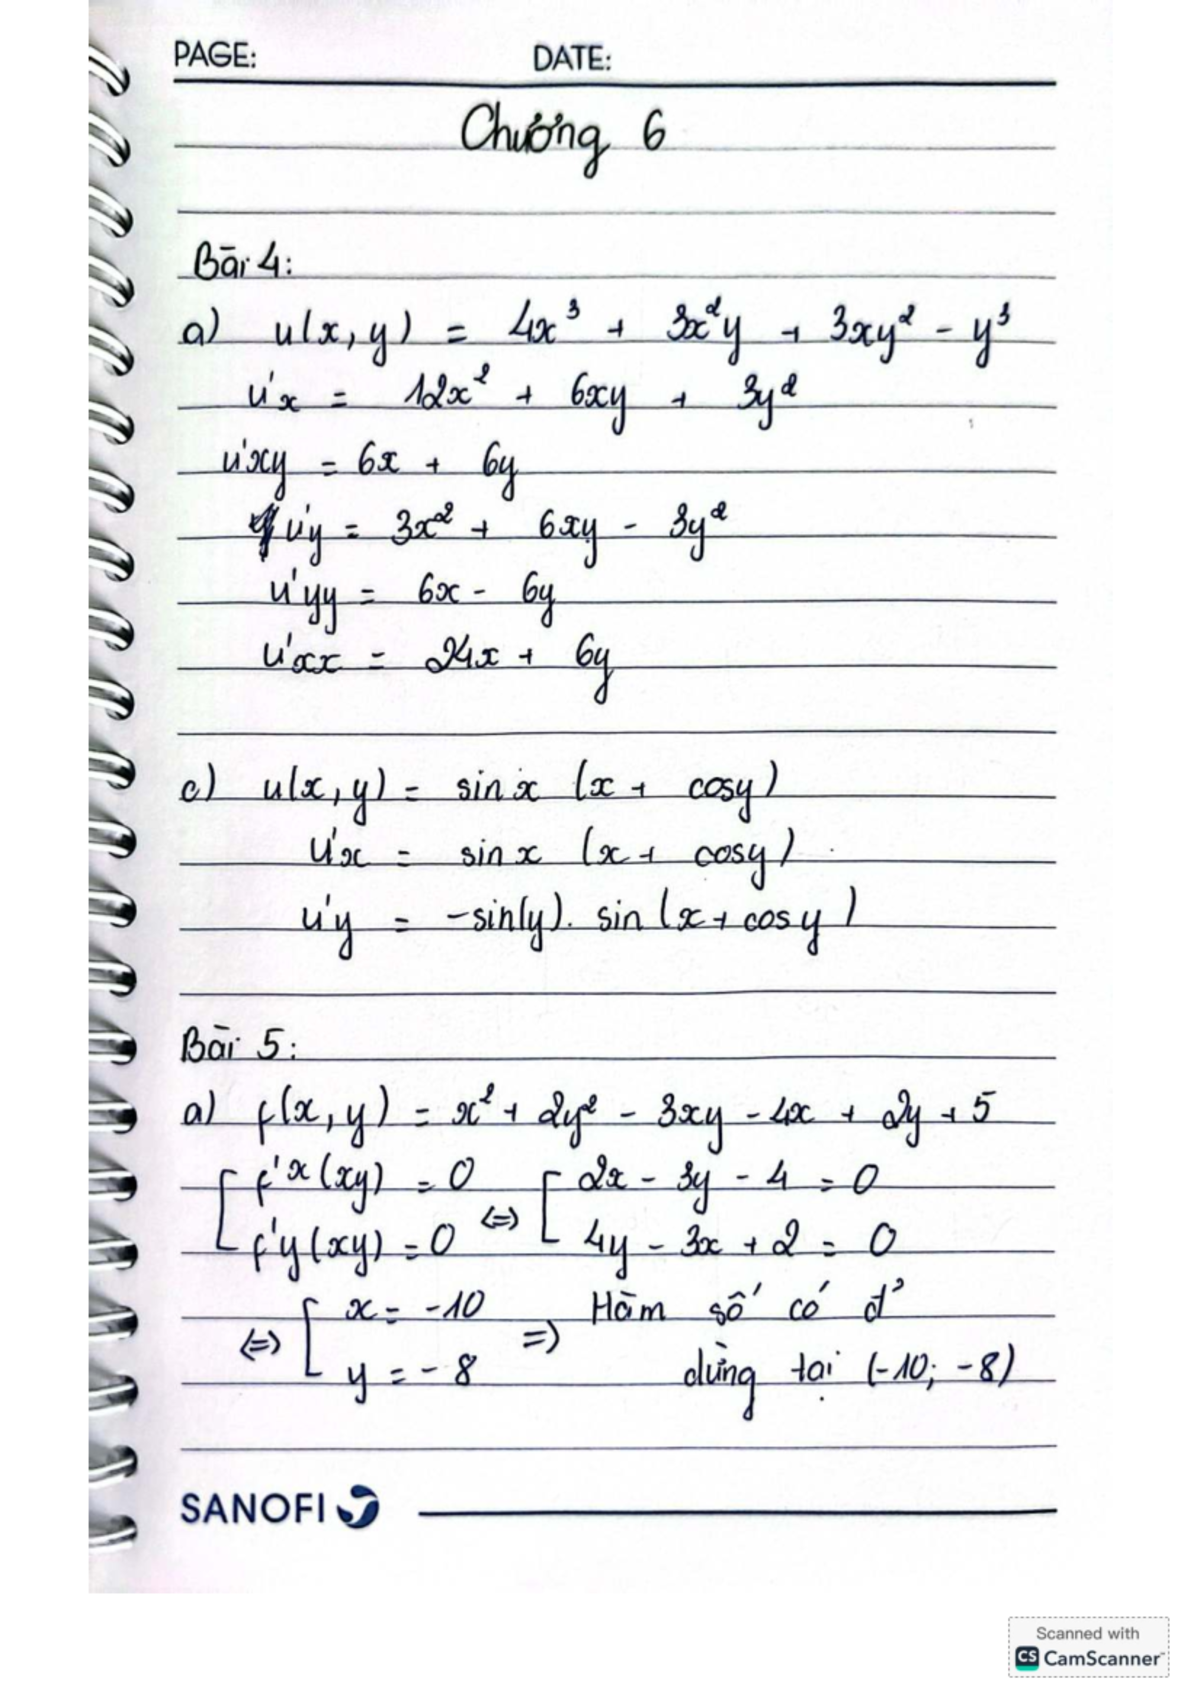 PAGE: DATE:
Chương 6
Bài 4:
a) u(x, y) = 4x³ + 3x²y + 3xy² - y³
u'x = 12x² + 6xy + 3y²
u'xy = 6x + 6y
u'y = 3x² + 6xy - 3y²
u'yy = 6x - 6y
u'xx = 24x + 6y
c) u(x, y) = sin x (x + cosy)
u'x = sin x (x + cosy)
u'y = -sin(y). sin (x + cos y)
Bài 5:
a) f(x, y) = x² + 2y² - 3xy - 4x + 2y + 5
[ f'x (xy) = 0 <=> [ 2x - 3y - 4 = 0
f'y (xy) = 0 4y - 3x + 2 = 0
<=> [ x = -10 => Hàm số có đ'
y = -8 dừng tại (-10; -8)
SANOFI
Scanned with
CS CamScanner